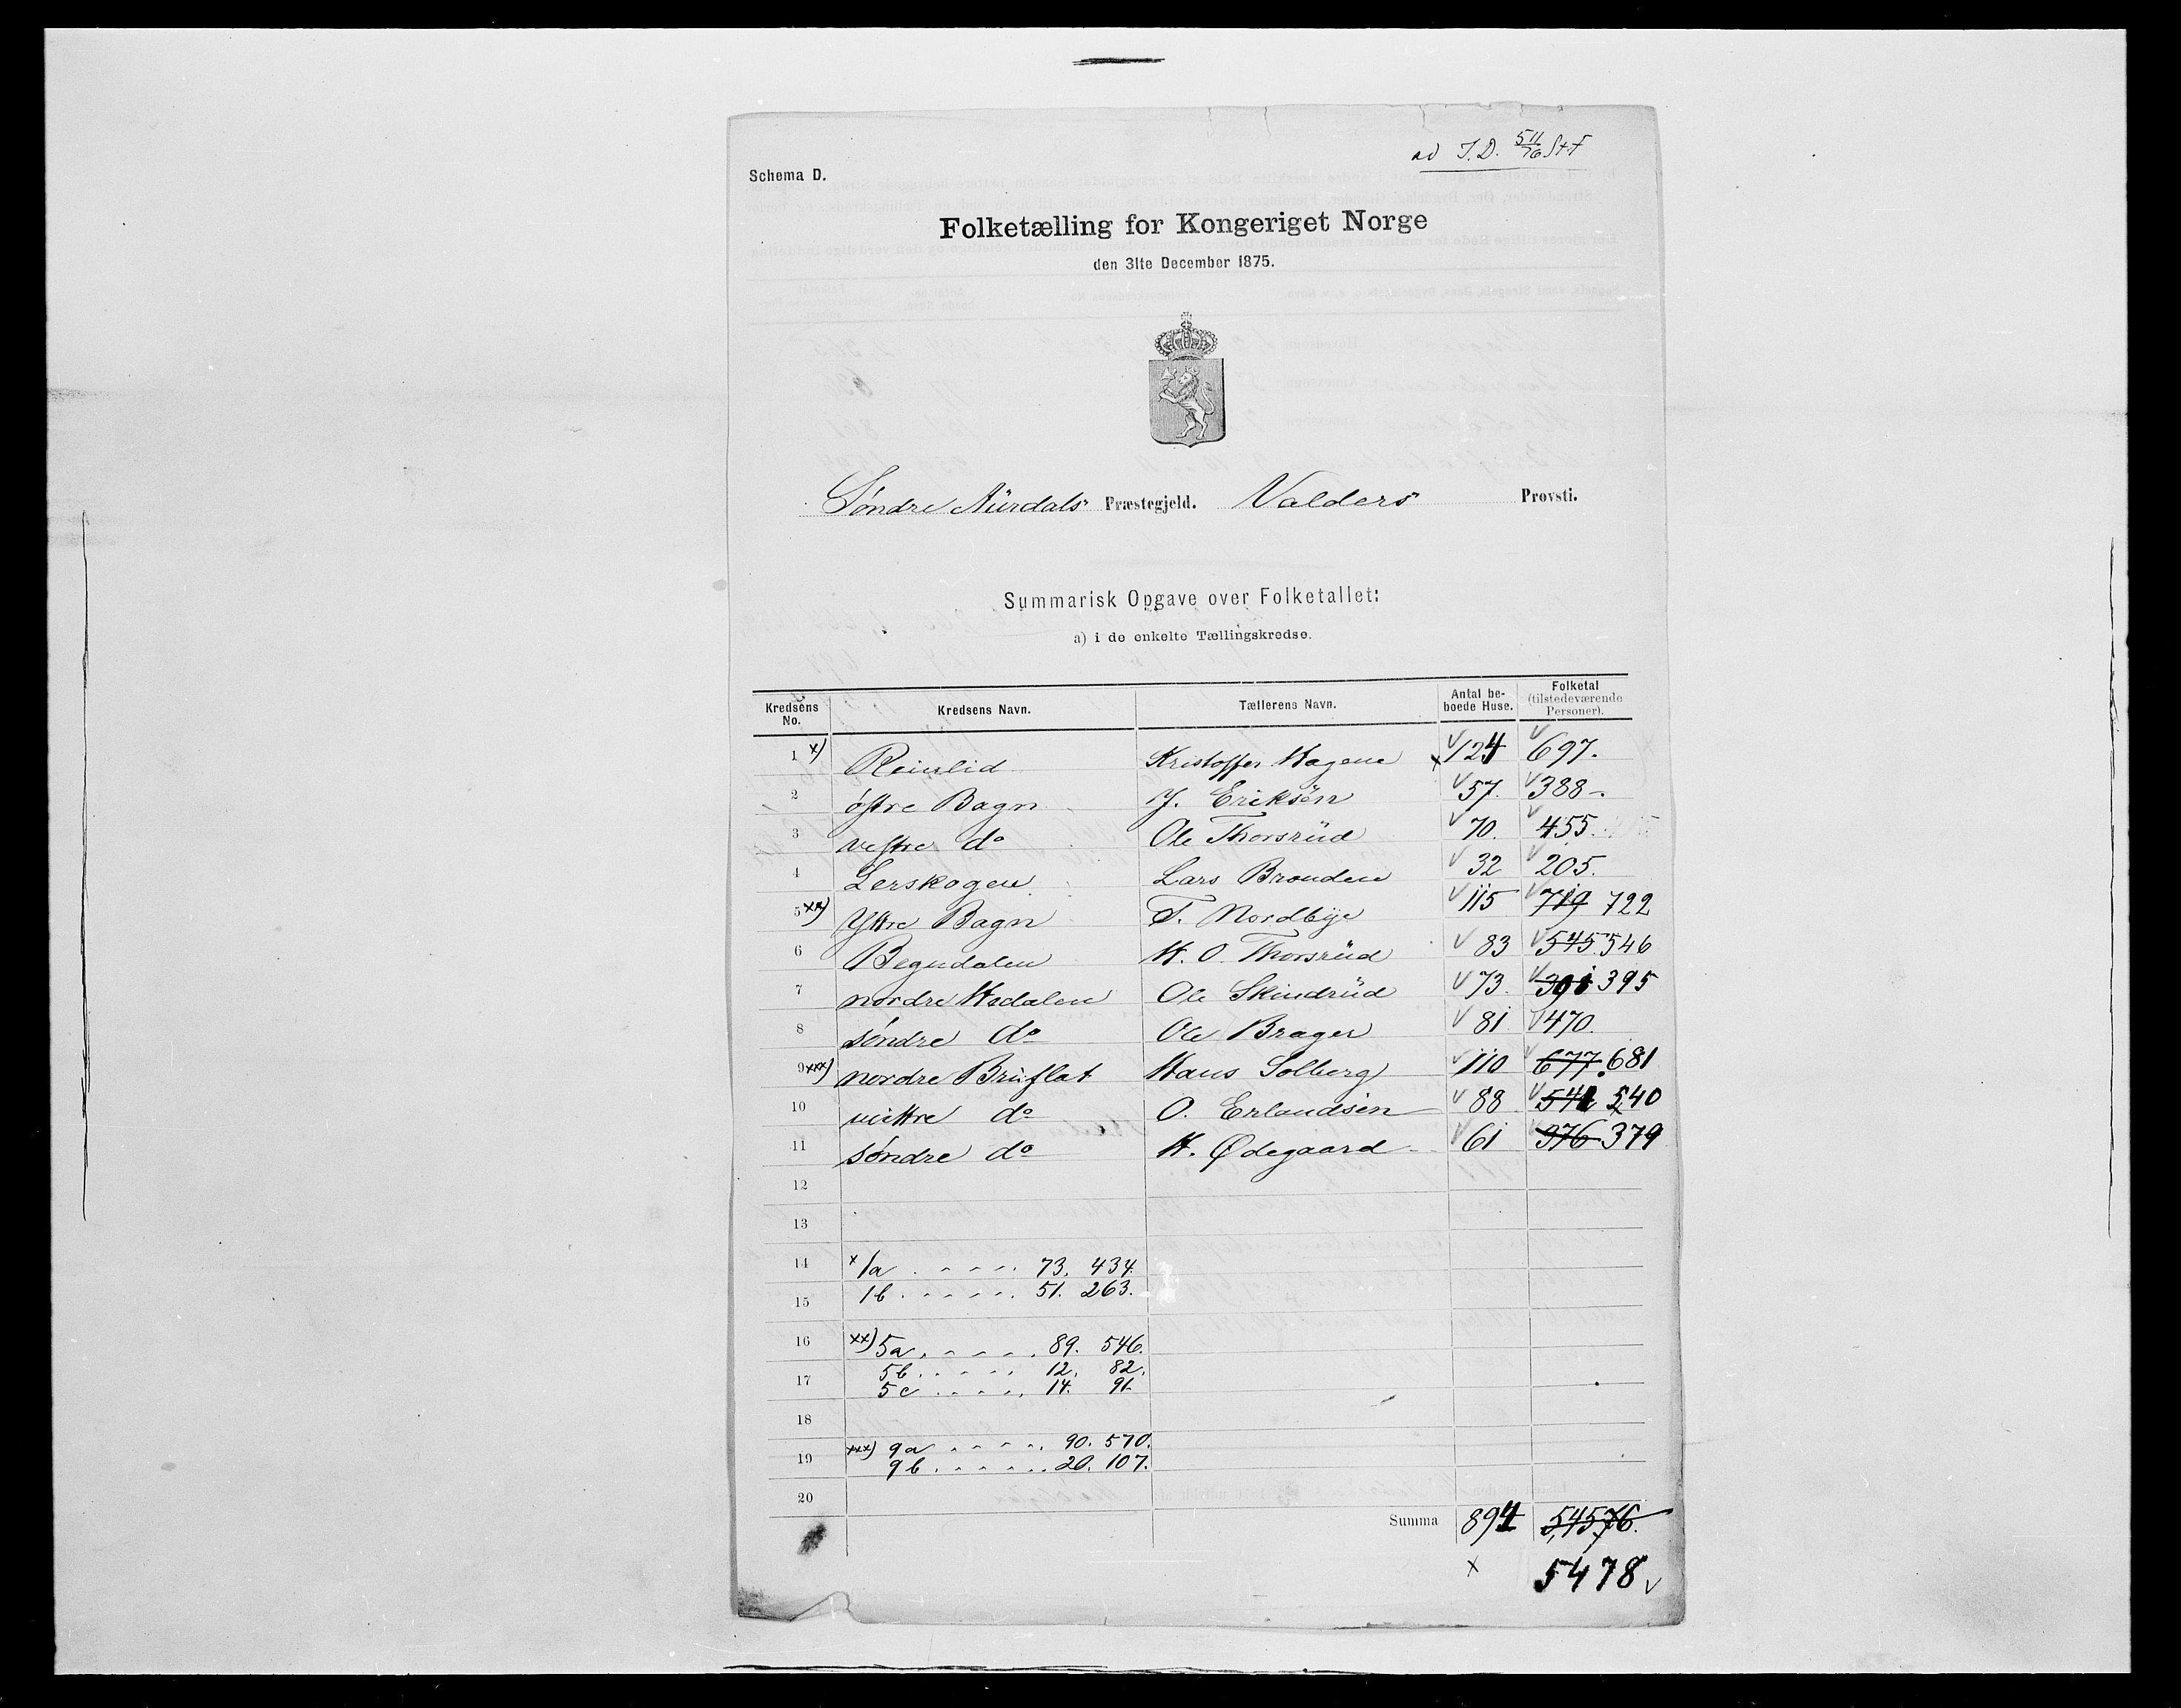 ad J.D. 511/76 St.f
Schema D.
Folketælling for Kongeriget Norge
den 31te December 1875.
Søndre Aurdals Præstegjeld. Valders Provsti.
Summarisk Opgave over Folketallet:
a) i de enkelte Tællingskredse.
Kredsens No. Kredsens Navn. Tællerens Navn. Antal beboede Huse. Folketal (tilstedeværende Personer).
1 x) Reinlid Kristoffer Hagene x 124 697.
2 østre Bagn J. Eriksøn 57. 388.
3 vestre do Ole Thorsrud 70. 455.
4 Lerskogen Lars Brænden 32 205.
5 xx) Yttre Bagn T. Nordbye 115 719 722
6 Begndalen H. O. Thorsrud 83 545. 546
7 nordre Hedalen Ole Skindrud 73. 395
8 søndre do Ole Brager 81 470.
9 xxx) nordre Bruflat Hans Solberg 110 677. 681
10 mittre do O. Erlandsen 88 541 540
11 søndre do H. Ødegaard 61 376 379
12
13
14 x/1a . . . . . 73. 434.
15 1b . . . . . . 51. 263.
16 xx) 5a . . . . . 89. 546.
17 5b . . . . . 12. 82.
5c . . . . . 14. 91.
18
19 xxx) 9a . . . . . 90. 570.
9b . . . . . . 20. 107.
20
Summa 894
x 5478